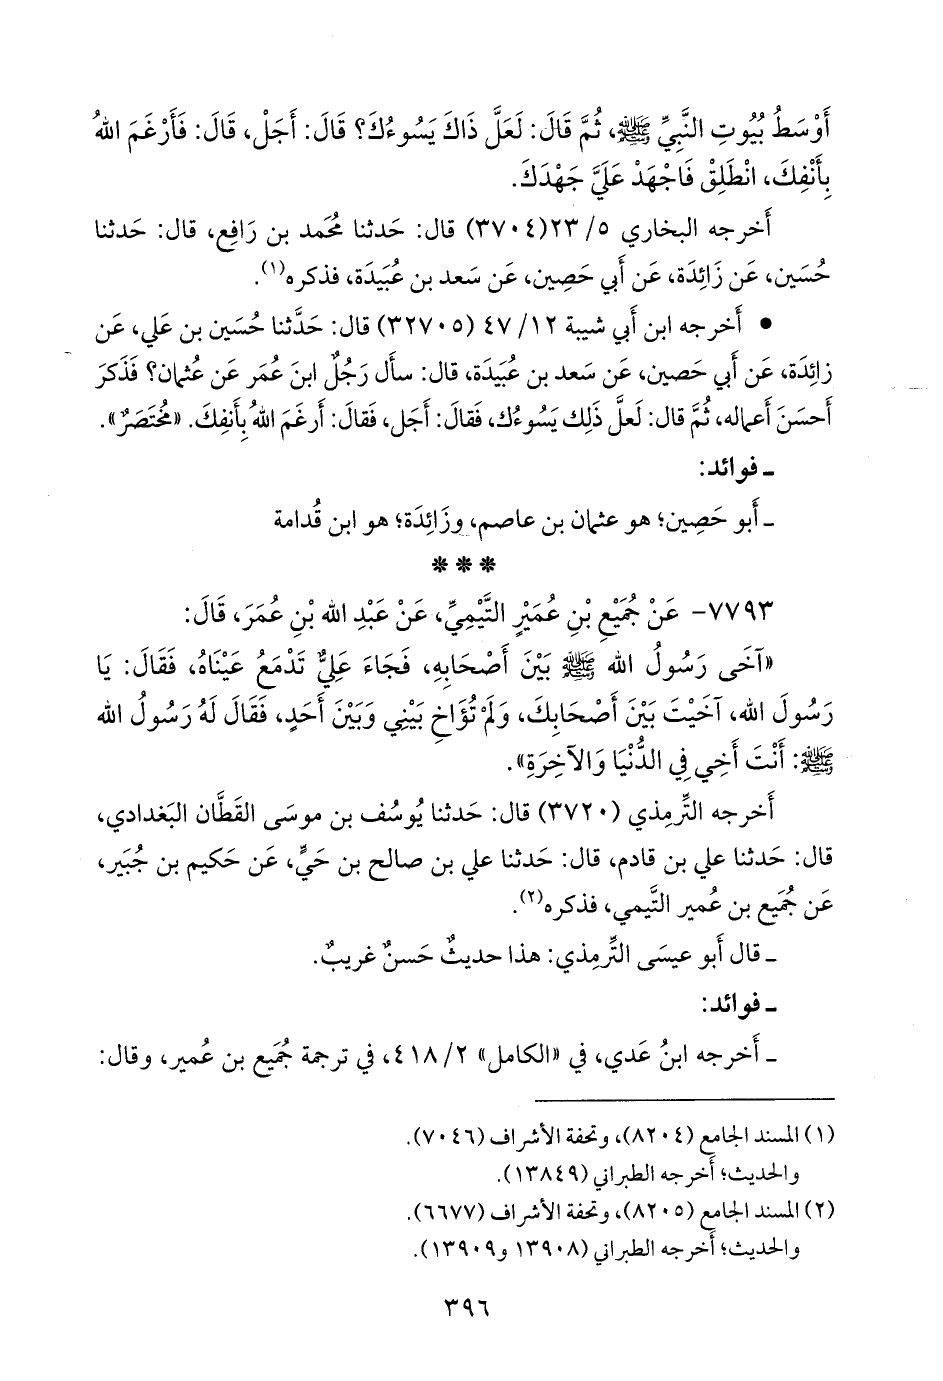 أَوْسَطُ بُيُوتِ النَّبِيِّ ﷺ، ثُمَّ قَالَ: لَعَلَّ ذَاكَ يَسُوءُكَ؟ قَالَ: أَجَلْ، قَالَ: فَأَرْغَمَ اللهُ
بِأَنْفِكَ، انْطَلِقْ فَاجْهَدْ عَلَيَّ جَهْدَكَ.
أَخرجه البخاري ٥/ ٢٣(٣٧٠٤) قال: حَدثنا مُحَمد بن رَافِع، قال: حَدثنا
حُسَين، عَن زَائِدَة، عَن أَبي حَصِين، عَن سَعد بن عُبَيدَة، فذكره(١).
• أَخرجه ابن أَبي شيبة ١٢/ ٤٧ (٣٢٧٠٥) قال: حَدَّثنا حُسَين بن علي، عَن
زائِدَة، عَن أَبي حَصين، عَن سَعد بن عُبَيدَة، قال: سأَل رَجُلٌ ابنَ عُمَر عَن عُثمان؟ فَذَكرَ
أَحسَنَ أَعماله، ثُمَّ قال: لَعلَّ ذَلِك يَسُوءُك، فَقالَ: أَجَل، فَقالَ: أَرغَمَ اللهُ بِأَنفِكَ. «مُختَصَرٌ».
ـ فوائد:
ـ أَبو حَصِين؛ هو عثمان بن عاصم، وزَائِدَة؛ هو ابن قُدامة
* * *
٧٧٩٣- عَنْ جُمَيْعِ بْنِ عُمَيْرٍ التَّيْمِيِّ، عَنْ عَبْدِ الله بْنِ عُمَرَ، قَالَ:
«آخَى رَسُولُ الله ﷺ بَيْنَ أَصْحَابِهِ، فَجَاءَ عَلِيٌّ تَدْمَعُ عَيْنَاهُ، فَقَالَ: يَا
رَسُولَ الله، آخَيْتَ بَيْنَ أَصْحَابِكَ، وَلَمْ تُؤَاخِ بَيْنِي وَبَيْنَ أَحَدٍ، فَقَالَ لَهُ رَسُولُ الله
ﷺ: أَنْتَ أَخِي فِي الدُّنْيَا وَالآخِرَةِ».
أَخرجه التِّرمِذي (٣٧٢٠) قال: حَدثنا يُوسُف بن موسَى القَطَّان البَغدادي،
قال: حَدثنا علي بن قادم، قال: حَدثنا علي بن صالح بن حَيٍّ، عَن حَكيم بن جُبَير،
عَن جُمَيع بن عُمير التَّيمي، فذكره(٢).
ـ قال أَبو عيسَى التِّرمِذي: هذا حديثٌ حَسنٌ غريبٌ.
ـ فوائد:
ـ أَخرجه ابنُ عَدي، في «الكامل» ٢/ ٤١٨، في ترجمة جُمَيع بن عُمير، وقال:
(١) المسند الجامع (٨٢٠٤)، وتحفة الأشراف (٧٠٤٦).
والحديث؛ أَخرجه الطبراني (١٣٨٤٩).
(٢) المسند الجامع (٨٢٠٥)، وتحفة الأشراف (٦٦٧٧).
والحديث؛ أَخرجه الطبراني (١٣٩٠٨ و١٣٩٠٩).
٣٩٦